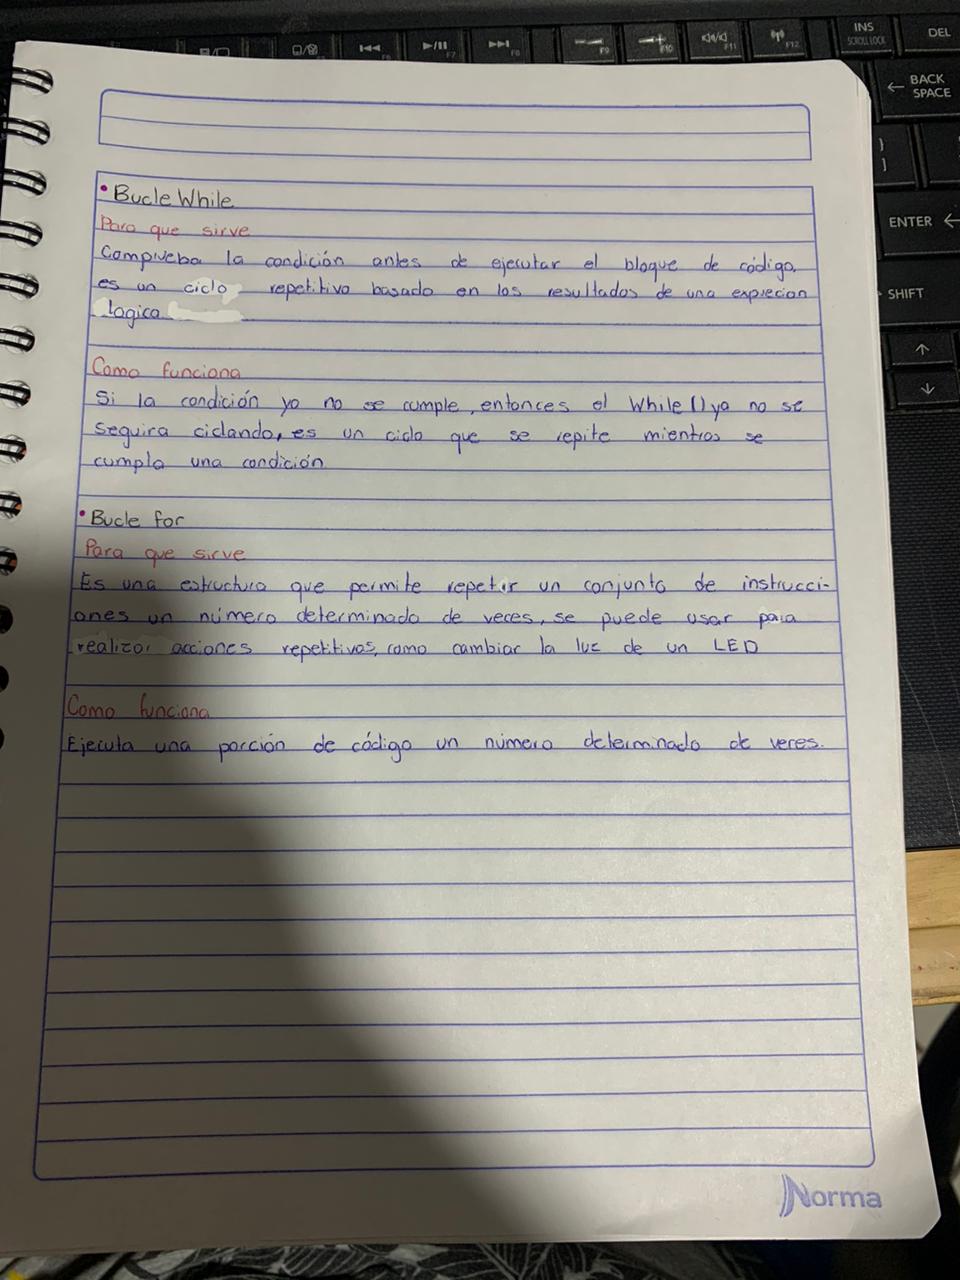 INS
SCROLL LOCK
DEL
F7
F8
F9
F10
F11
F12
BACK
SPACE
ENTER
SHIFT
• Bucle While
Para que sirve
Comprueba la condición antes de ejecutar el bloque de código.
es un ciclo repetitivo basado en los resultados de una exprecion
logica
Como funciona
Si la condición ya no se cumple, entonces el While() ya no se
seguira ciclando, es un ciclo que se repite mientras se
cumpla una condición
• Bucle for
Para que sirve
Es una estructura que permite repetir un conjunto de instrucci-
ones un número determinado de veces, se puede usar para
realizar acciones repetitivas, como cambiar la luz de un LED
Como funciona
Ejecuta una porción de código un número determinado de veces.
Norma